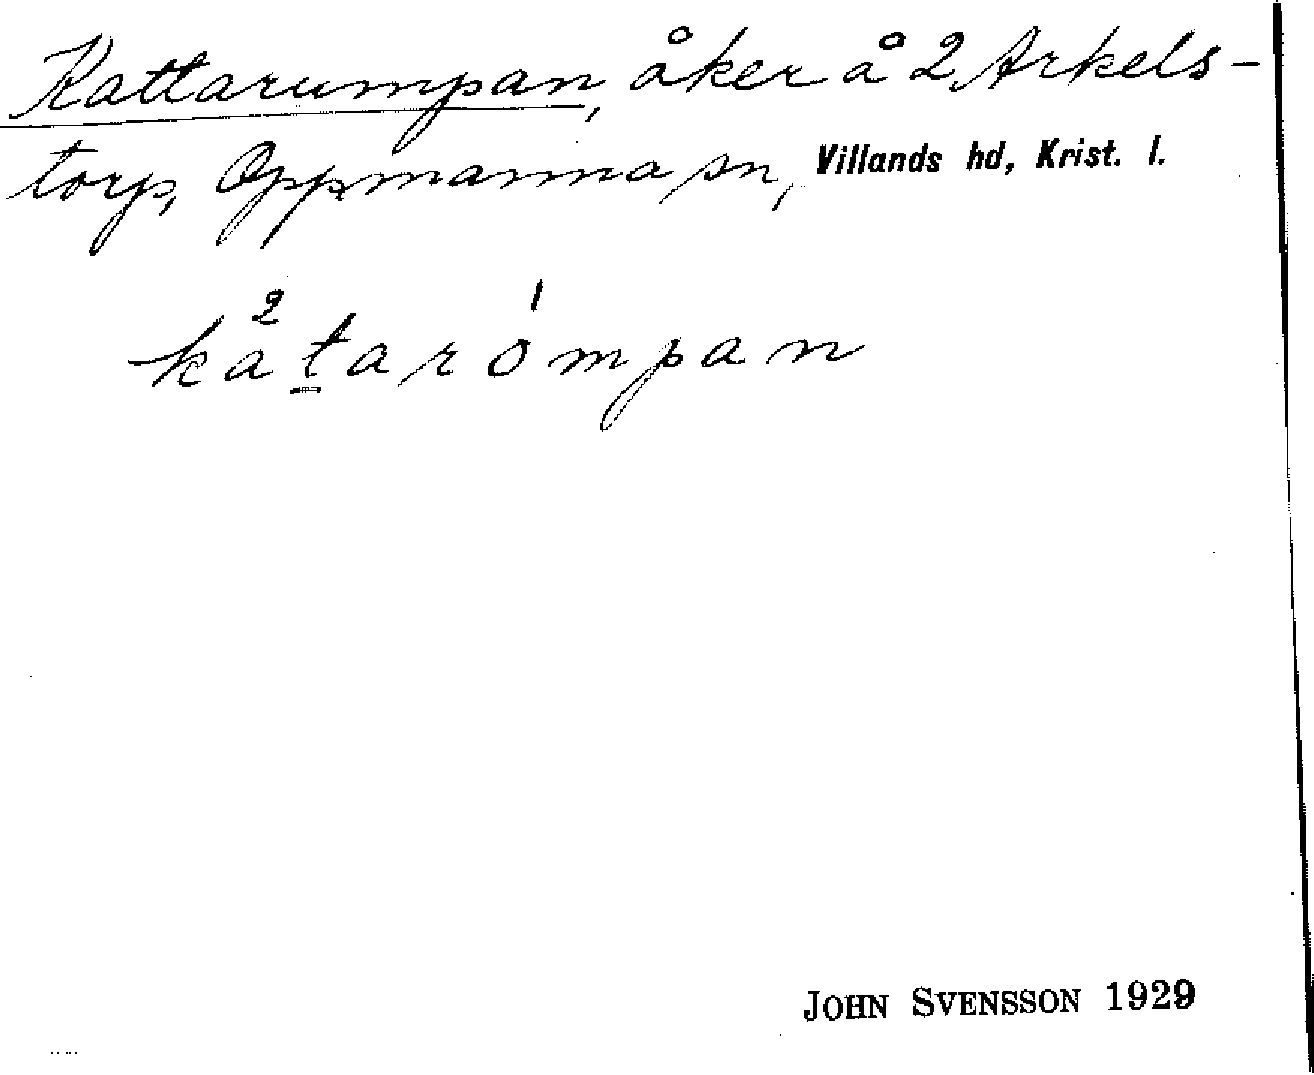 Kattarumpan, åker å 2 Arkels-
torp, Oppmanna sn, Villands hd, Krist. l.
2 1
katarompan
JOHN SVENSSON 1929